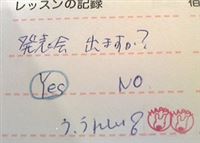 レッスンの記録 宿
発表会 出ますか?
Yes NO
う、うれしい